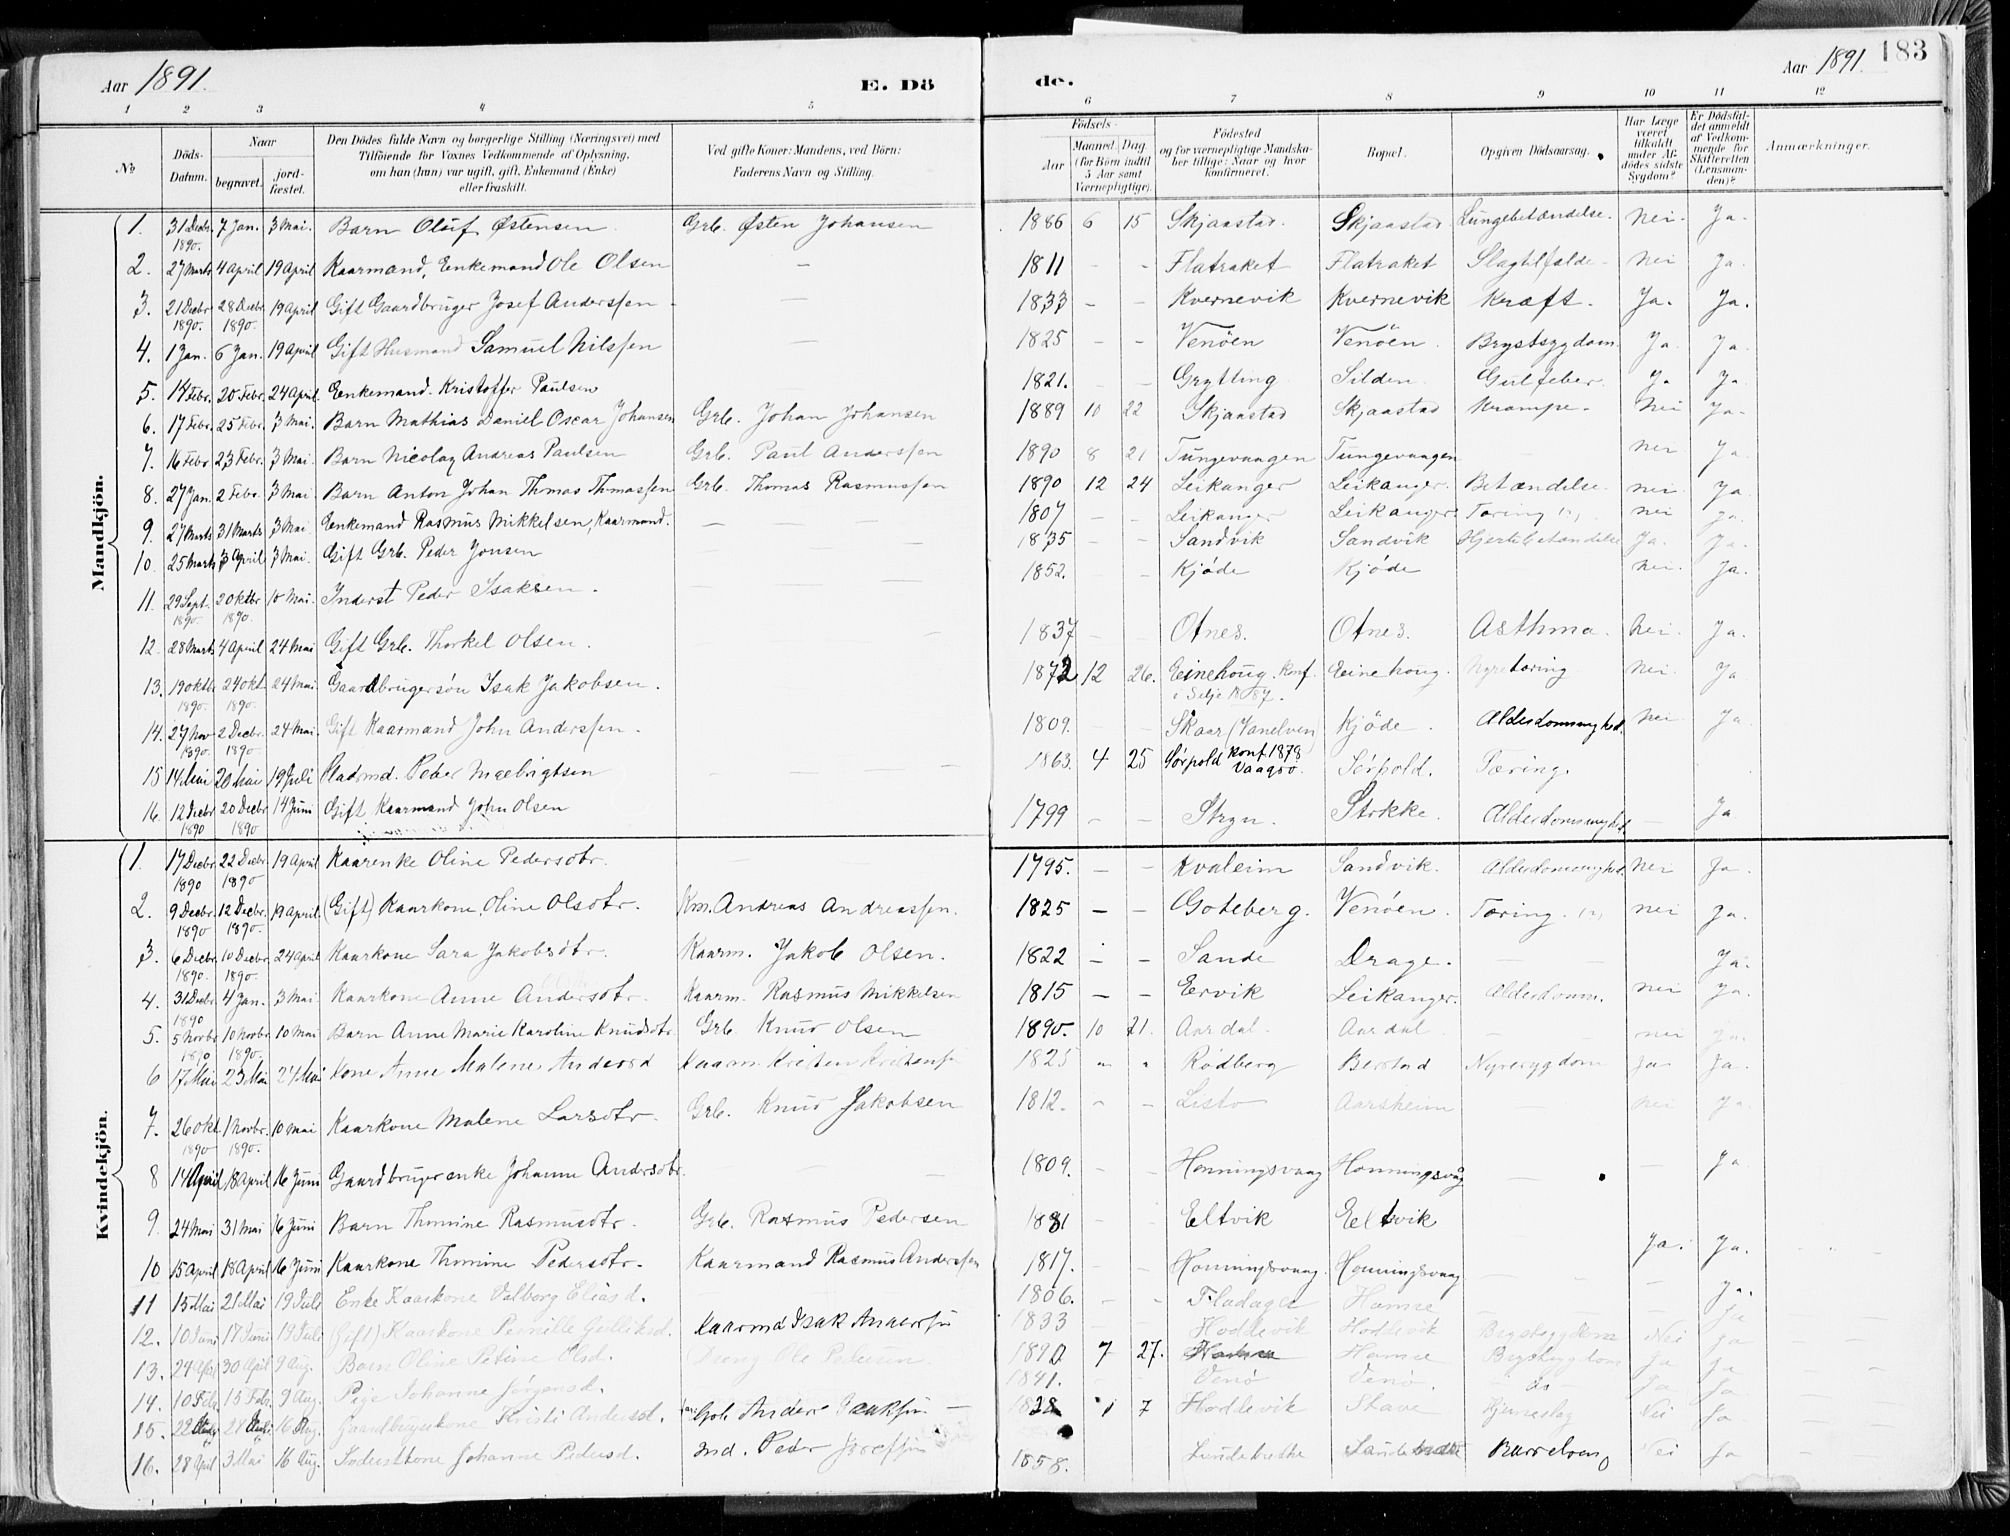 Aar 1891. E. Dö
de. Aar 1891. 183
1 2 3 4 5
6 7 8 9 10 11 12
No
Döds-Datum.
Naar
begravet.
jord-fæstet.
Den Dödes fulde Navn og borgerlige Stilling (Næringsvei) med
Tilföiende for Voxnes Vedkommende af Oplysning,
om han (hun) var ugift, gift, Enkemand (Enke)
eller fraskilt.
Ved gifte Koner: Mandens, ved Börn:
Faderens Navn og Stilling.
Födsels-
Aar
Maaned. Dag
(for Börn indtil
5 Aar samt
Værnepligtige).
Födested
og for værnepligtige Mandska-
ber tillige: Naar og hvor
konfirmeret.
Bopæl.
Opgiven Dödsaarsag.
Har Læge
været
tilkaldt
under Af-
dödes sidste
Sygdom?
Er Dödsfal-
det anmeldt
af Vedkom-
mende for
Skifteretten
(Lensman-
den)?
Anmærkninger.
Mandkjön.
1. 31 Decbr. 1890. 7 Jan. 3 Mai. Barn Oluf Østensen. Grb. Østen Johansen 1886 6 15 Skjaastad. Skjaastad. Lungebetændelse. Nei. Ja.
2. 27 Marts 4 April 19 April Kaarmand, Enkemand Ole Olsen — 1811 - - Flatraket Flatraket Slagtilfælde. Nei Ja.
3. 21 Decbr. 1890. 28 Decbr. 1890. 19 April Gift Gaardbruger Josef Anderssen — 1833 - - Kvernevik Kvernevik Kræft. Ja. Ja.
4. 1 Jan. 6 Jan. 19 April Gift Husmand Samuel Nilssen — 1825 - - Venöen Venöen. Brystsygdom. Ja Ja.
5. 14 Febr. 20 Febr. 24 April Enkemand. Kristoffer Paulsen 1821. - - Grytting Silden. Gulfeber. Ja Ja.
6. 17 Febr. 25 Febr. 3 Mai. Barn Mathias Daniel Oscar Johansen Grb. Johan Johansen 1889 10 22 Skjaastad Skjaastad Krampe. Nei Ja.
7. 16 Febr. 23 Febr. 3 Mai. Barn Nicolay Andreas Paulsen Grb. Paul Anderssen 1890 8 21 Tungevaagen Tungevaagen nei. Ja.
8. 27 Jan. 2 Febr. 3 Mai Barn Anton Johan Thomas Thmassen Grb. Thomas Rasmussen 1890 12 24 Leikanger Leikanger. Betændelse. nei. Ja.
9. 27 Marts 31 Marts 3 Mai Enkemand Rasmus Mikkelsen, Kaarmand. — 1807 - - Leikanger Leikanger. Tæring (?) nei Ja.
10. 25 Marts 3 April 3 Mai. Gift Grb. Peder Jonsen 1835 - - Sandvik Sandvik Hjertebetændelse Ja. Ja.
11. 29 Sept. 1890. 2 Oktbr. 1890. 10 Mai. Inderst Peder Isaksen. 1852. - - Kjöde Kjöde nei. Ja.
12. 28 Marts 4 April 24 Mai Gift Grb. Thorkel Olsen. 1837 - - Otnes. Otnes. Asthma. Nei. Ja.
13. 19 Oktb. 1890. 24 Okt. 1890. 24 Mai. Gaardbrugersøn Isak Jakobsen. 1872 12 26. Eeinehoug. Konf. i Selje 1887. Eeinehoug. Nyretæring Nei. Ja
14. 27 Nov. 1890. 2 Decbr. 1890. 24 Mai. Gift Kaarmand John Anderssen. 1809. - Skaar (Vanelven) Kjöde. Alderdomssvaghed. Nei Ja.
15 14 Mai 20 Mai 19 Juli Peder Ingebrigtsen 1863. 4 25 Sörpold konf. 1878 Vaagsö. Sörpold. Tæring.
16. 12 Decbr. 1890 20 Decbr. 1890 14 Juni Gift Kaarmand John Olsen 1799 - - Stryn. Stokke. Alderdomssvaghed. — Ja
Kvindekjön.
1. 17 Decbr. 1890 22 Decbr. 1890 19 April Kaarenke Oline Pedersdtr. 1795. - - Kvaleim Sandvik. Alderdomssvaghed. Nei Ja.
2. 9 Decbr. 1890 12 Decbr. 1890. 19 April. (Gift) Kaarkone Oline Olsdtr. Km. Andreas Andreassen. 1825 - - Goteberg. Venöen. Tæring. (?) nei Ja.
3. 6 Decbr. 1890. 10 Decbr. 1890. 24 April Kaarkone Sara Jakobsdtr. Kaarm. Jakob Olsen. 1822 - - Sande Drage. — Ja.
4. 31 Decbr. 1890 4 Jan. 3 Mai Kaarkone Anne Andersdtr. Kaarm. Rasmus Mikkelsen 1815 - - Eervik Leikanger. Alderdomm. nei Ja.
5. 5 Novbr. 1890 10 Novbr. 1890. 10 Mai Barn Anne Marie Karoline Knudsdtr. Grb. Knud Olsen 1890. 10 21. Aardal Aardal — nei Ja.
6 17 Mai 23 Mai 24 Mai Kone Anne Malene Andersd Kaarm. Kristen 1825 " " Rödberg Berstad Nyresygdom Ja Ja.
7. 26 Okt. 1890 1 Novbr. 1890. 10 Mai Kaarkone Malene Larsdtr. Grb. Knud Jakobsen 1812. - - Listo Aarsheim nei Ja.
8 14 April 18 April 16 Juni Gaardbrugerenke Johanne Andersdtr. — 1809. - - Honningsvaag Honningsvåg — — Ja
9. 24 Mai 31 Mai 16 Juni Barn Thomine Rasmusdtr. Grb. Rasmus Pedersen 1881 - - Eeltvik Eeltvik
10 15 April 18 April 16 Juni Kaarkone Thomine Pedersdtr. Kaarmand Rasmus Anderssen 1817. - - Honningsvaag. Honningsvaag Ja. Ja.
11 15 Mai 21 Mai 19 Juli Enke Kaarkone Valborg Eliasd. 1806. - - Hamre — Ja.
12. 10 Juni 17 Juni 19 Juli (Gift) Kaarkone Pernille Gulliksd. Kaarmd Isak 1833 Hoddevik Hoddevik Brystsygdom Nei Ja
13. 24 April 30 April 9 Aug. Barn Oline Petrine Olsd. Ole Pedersen 1890 7 27. Hamre Brystsygdom Ja Ja
14. 10 Febr. 15 Febr. 9 Aug. Pige Johanne Jörgensd. 1841. Venö Venö. do Ja Ja
15. 22 28 16 Aug. Gaardbrugerkone Kristi Andersd. Grb. 1 7 Hoddevik Stave Nei Ja
16. 28 April 3 Mai 16 Aug. Inderstkone Johanne Pedersd. Ind. Peder Josefsen 1858. Barselseng Nei Ja